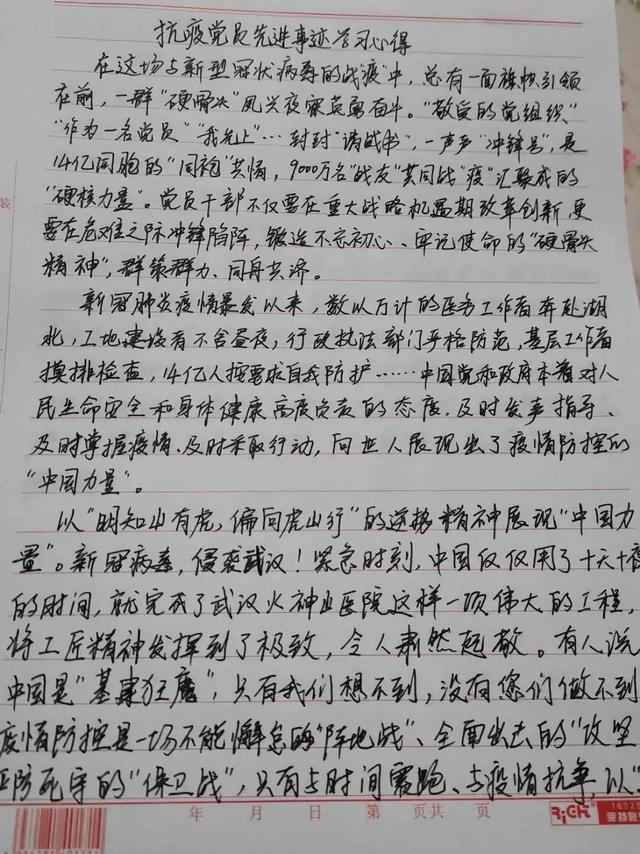 抗疫党员先进事迹学习心得
在这场与新型冠状病毒的战“疫”中，总有一面旗帜引领
在前，一群“硬骨头”夙兴夜寐英勇奋斗。“敬爱的党组织”
“作为一名党员”“我先上”…封封“请战书”，一声声“冲锋号”，是
14亿同胞的“同袍”共情，9000万名“战友”共同战“疫”汇聚成的
“硬核力量”。党员干部不仅要在重大战略机遇期改革创新，更
要在危难之际冲锋陷阵，锻造不忘初心、牢记使命的“硬骨头
精神”，群策群力、同舟共济。
新冠肺炎疫情暴发以来，数以万计的医务工作者奔赴湖
北，工地建设者不舍昼夜，行政执法部门严格防范，基层工作者
摸排检查，14亿人按要求自我防护……中国党和政府本着对人
民生命安全和身体健康高度负责的态度，及时发声指导、
及时掌握疫情、及时采取行动，向世人展现出了疫情防控的
“中国力量”。
以“明知山有虎，偏向虎山行”的逆势精神展现“中国力
量”。新冠病毒，侵袭武汉！紧急时刻，中国仅仅用了十天十夜
的时间，就完成了武汉火神山医院这样一项伟大的工程，
将工匠精神发挥到了极致，令人肃然起敬。有人说
中国是“基建狂魔”，只有我们想不到，没有您们做不到
疫情防控是一场不能懈怠的“阵地战”、全面出击的“攻坚
严防死守的“保卫战”，只有与时间赛跑、与疫情抗争，以“
年 月 日 第 页共 页
RiCH